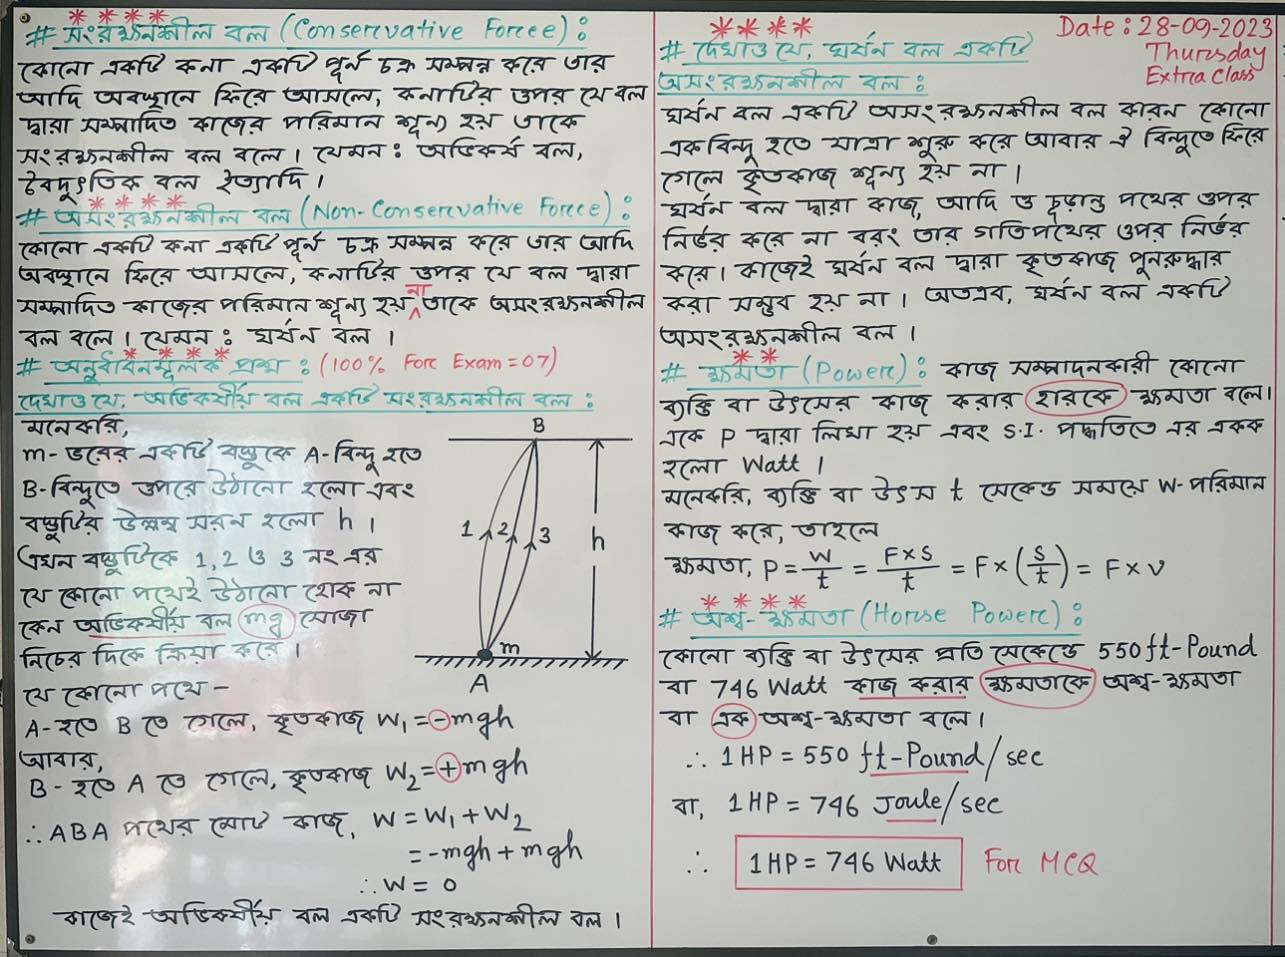 # সংরক্ষনশীল বল (Conservative Force) :
কোনো একটি কনা একটি পূর্ন চক্র সম্পন্ন করে তার
আদি অবস্থানে ফিরে আসলে, কনাটির ওপর যে বল
দ্বারা সম্পাদিত কাজের পরিমান শূন্য হয় তাকে
সংরক্ষনশীল বল বলে। যেমন : অভিকর্ষ বল,
বৈদ্যুতিক বল ইত্যাদি।
# অসংরক্ষনশীল বল (Non-Conservative Force) :
কোনো একটি কনা একটি পূর্ন চক্র সম্পন্ন করে তার আদি
অবস্থানে ফিরে আসলে, কনাটির ওপর যে বল দ্বারা
সম্পাদিত কাজের পরিমান শূন্য হয় না তাকে অসংরক্ষনশীল
বল বলে। যেমন : ঘর্ষন বল।
# অনুধাবনমূলক প্রশ্ন : (100% For Exam = 07)
দেখাও যে, অভিকর্ষীয় বল একটি সংরক্ষনশীল বল :
মনেকরি,
m-ভরের একটি বস্তুকে A-বিন্দু হতে
B-বিন্দুতে ওপরে উঠানো হলো এবং
বস্তুটির উল্লম্ব সরন হলো h।
এখন বস্তুটিকে 1, 2 ও 3 নং এর
যে কোনো পথেই উঠানো হোক না
কেন অভিকর্ষীয় বল mg সোজা
নিচের দিকে ক্রিয়া করে।
যে কোনো পথে –
A-হতে B তে গেলে, কৃতকাজ W₁ = -mgh
আবার,
B-হতে A তে গেলে, কৃতকাজ W₂ = +mgh
∴ ABA পথের মোট কাজ, W = W₁ + W₂
= -mgh + mgh
∴ W = 0
কাজেই অভিকর্ষীয় বল একটি সংরক্ষনশীল বল।
B
1
2
3
h
m
A
Date : 28-09-2023
Thursday
Extra Class
# দেখাও যে, ঘর্ষন বল একটি
অসংরক্ষনশীল বল :
ঘর্ষন বল একটি অসংরক্ষনশীল বল কারন কোনো
একবিন্দু হতে যাত্রা শুরু করে আবার ঐ বিন্দুতে ফিরে
গেলে কৃতকাজ শূন্য হয় না।
ঘর্ষন বল দ্বারা কাজ, আদি ও চূড়ান্ত পথের ওপর
নির্ভর করে না বরং তার গতিপথের ওপর নির্ভর
করে। কাজেই ঘর্ষন বল দ্বারা কৃতকাজ পুনরুদ্ধার
করা সম্ভব হয় না। অতএব, ঘর্ষন বল একটি
অসংরক্ষনশীল বল।
# ক্ষমতা (Power) : কাজ সম্পাদনকারী কোনো
ব্যক্তি বা উৎসের কাজ করার হারকে ক্ষমতা বলে।
একে P দ্বারা লিখা হয় এবং S.I. পদ্ধতিতে এর একক
হলো Watt।
মনেকরি, ব্যক্তি বা উৎস t সেকেন্ড সময়ে W-পরিমান
কাজ করে, তাহলে
ক্ষমতা, P = W/t = F×S/t = F×(S/t) = F×v
# অশ্ব-ক্ষমতা (Horse Power) :
কোনো ব্যক্তি বা উৎসের প্রতি সেকেন্ডে 550 ft-Pound
বা 746 Watt কাজ করার ক্ষমতাকে অশ্ব-ক্ষমতা
বা এক অশ্ব-ক্ষমতা বলে।
∴ 1 HP = 550 ft-Pound/sec
বা, 1 HP = 746 Joule/sec
∴ 1 HP = 746 Watt For MCQ